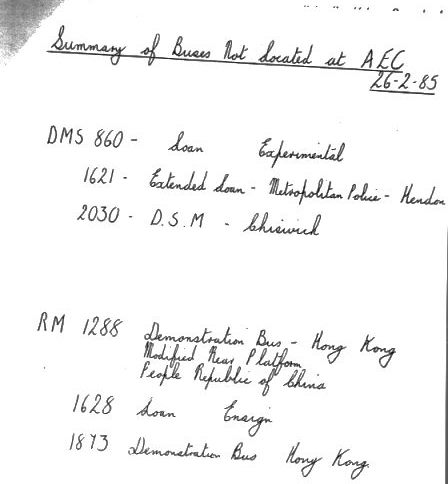 Summary of Buses Not Located at AEC
26-2-85
DMS 860 - Loan Experimental
1621 - Extended Loan - Metropolitan Police - Hendon
2030 - D.S.M - Chiswick
RM 1288 Demonstration Bus - Hong Kong
Modified Rear Platform
People Republic of China
1628 Loan Ensign
1873 Demonstration Bus Hong Kong.